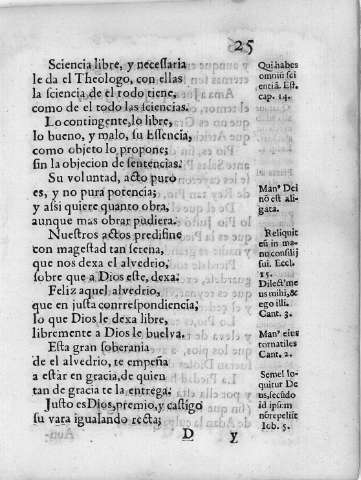 25
Sciencia libre, y necessaria
le da el Theologo, con ellas
la sciencia de el todo tiene,
como de el todo las sciencias.
Lo contingente, lo libre,
lo bueno, y malo, su Essencia,
como objeto lo propone;
sin la objecion de sentencias.
Su voluntad, acto puro
es, y no pura potencia;
y assi quiere quanto obra,
aunque mas obrar pudiera.
Nuestros actos predifine
con magestad tan serena,
que nos dexa el alvedrio,
sobre que a Dios este, dexa.
Feliz aquel alvedrio,
que en justa conrrespondiencia;
lo que Dios le dexa libre,
libremente a Dios le buelva.
Esta gran soberania
de el alvedrio, te empeña
a estàr en gracia, de quien
tan de gracia te la entrega.
Justo es Dios, premio, y castigo
su vara igualando recta;
D y
Qui habes
omniũ sci
entiã. Est.
cap. 14.
Manˢ Dei
nõ est ali-
gata.
Reliquit
eũ in ma-
nu consilij
sui. Eccl.
15.
Dilectᵒme
us mihi, &
ego illi.
Cant. 3.
Manˢ eius
tornatiles
Cant. 2.
Semel lo-
quitur De
us, secũdo
id ipsum
nõ repetit
Iob. 5.